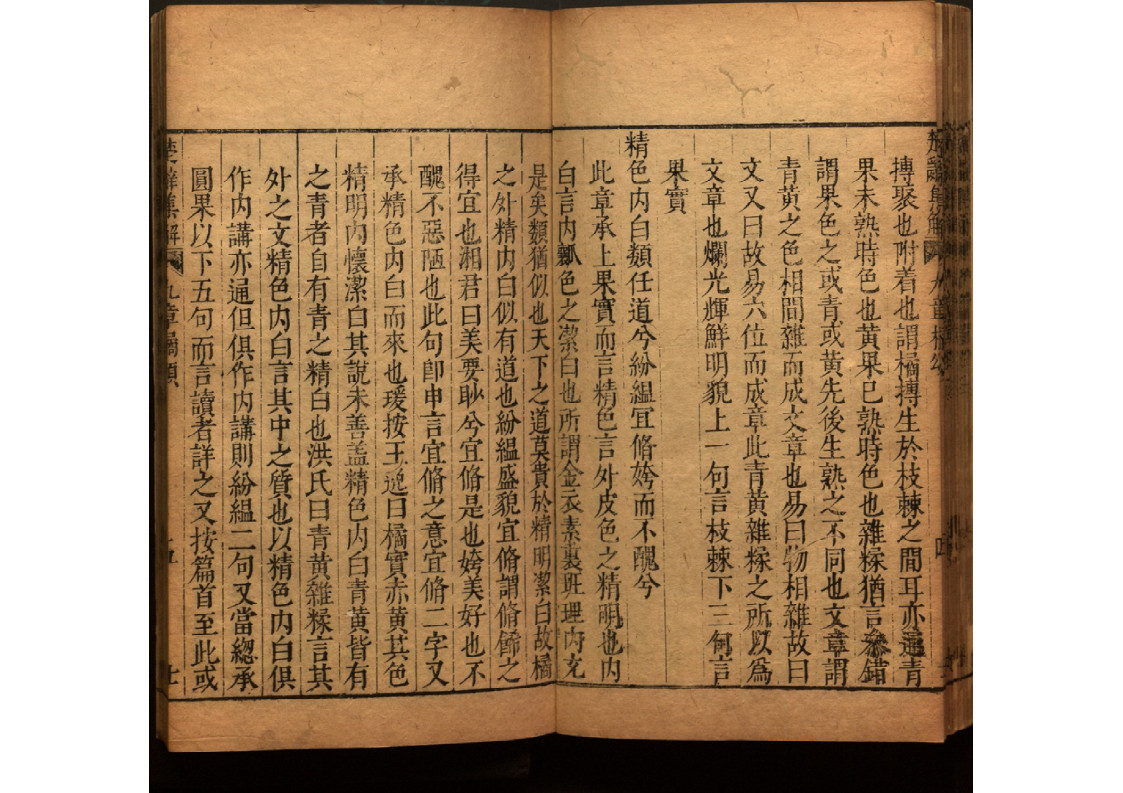 楚辭集解 九章橘頌
搏聚也附着也謂橘摶生於枝棘之間耳亦通青
果未熟時色也黃果已熟時色也雜糅猶言參錯
謂果色之或青或黃先後生熟之不同也文章謂
青黃之色相間雜而成文章也易曰物相雜故曰
文又曰故易六位而成章此青黃雜糅之所以爲
文章也爛光輝鮮明貌上一句言枝棘下三句言
果實
精色内白類任道兮紛緼冝脩姱而不醜兮
此章承上果實而言精色言外皮色之精明也内
白言内瓤色之潔白也所謂金衣素裏班理内充
是矣類猶似也天下之道莫貴於精明潔白故橘
之外精内白似有道也紛緼盛貌宜脩謂脩飾之
得宜也湘君曰美要眇兮宜脩是也姱美好也不
醜不惡陋也此句卽申言宜脩之意宜脩二字又
承精色内白而來也瑗按王逸曰橘實赤黃其色
精明内懷潔白其說未善盖精色内白青黃皆有
之青者自有青之精白也洪氏曰青黃雜糅言其
外之文精色内白言其中之質也以精色内白俱
作内講亦通但俱作内講則紛緼二句又當總承
圓果以下五句而言讀者詳之又按篇首至此或
楚辭集解 九章橘頌